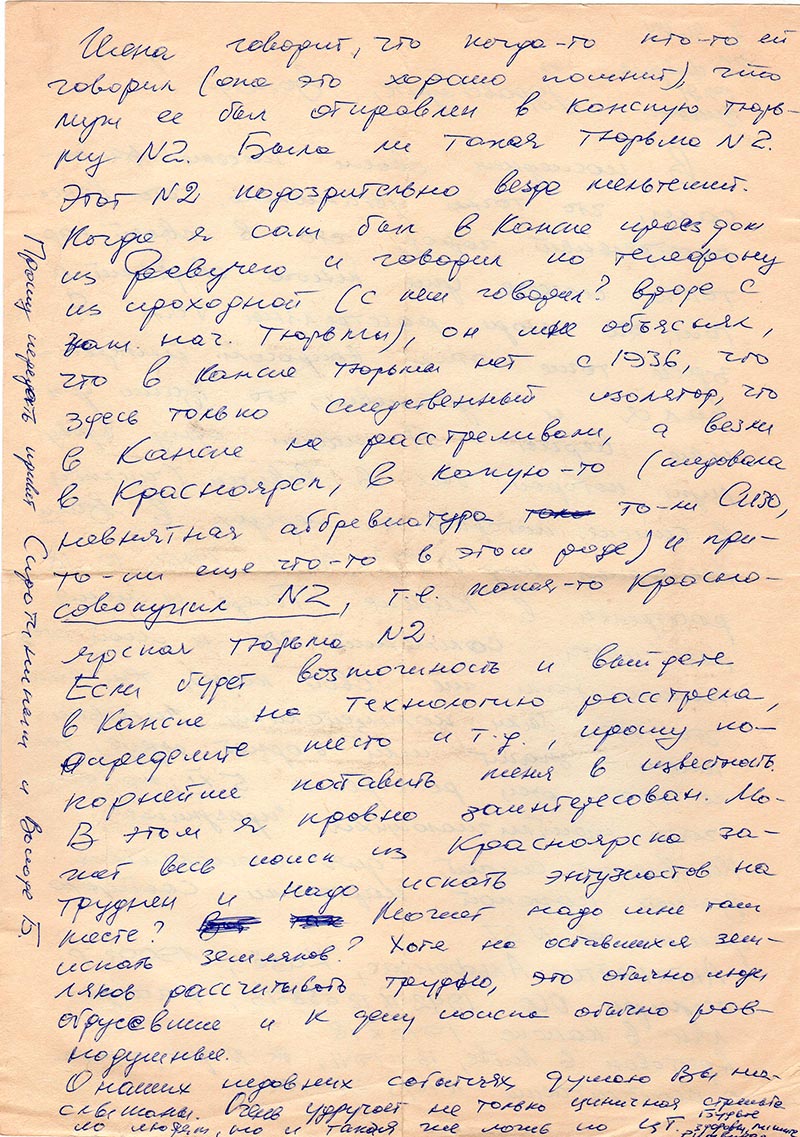 Жена говорит, что когда-то кто-то ей
говорил (она это хорошо помнит), что
муж ее был отправлен в Канскую тюрь-
му N2. Была ли такая тюрьма N2.
Этот N2 подозрительно везде мельтешит.
Когда я сам был в Канске проездом
из и говорил по телефону
из проходной (с кем говорил? вроде с
зам. нач. тюрьмы), он мне объяснял,
что в Канске тюрьмы нет с 1936, что
здесь только следственный изолятор, что
в Канске не расстреливали, а везли
в Красноярск, в какую-то (следовала
невнятная аббревиатура то-ли Сизо,
то-ли еще что-то в этом роде) и при-
совокупил N2, т.е. какая-то Красно-
ярская тюрьма N2.
Если будет возможность и выйдете
в Канске на технологию расстрела,
определите место и т.д., прошу по-
корнейше поставить меня в известность.
В этом я кровно заинтересован. Мо-
жет весь поиск из Красноярска за-
труднен и надо искать энтузиастов на
месте? Может надо мне там
искать земляков? Хотя на оставшихся зем-
ляков рассчитывать трудно, это обычно люди
обрусевшие и к делу поиска обычно рав-
нодушные.
О наших недавних событиях, думаю Вы на-
слышаны. Очень удручает не только циничная стрельба
по людям, но и такая же ложь по ЦТ. Будьте
здоровы, пишите
Прошу передать привет Сиротининым и Володе Б.